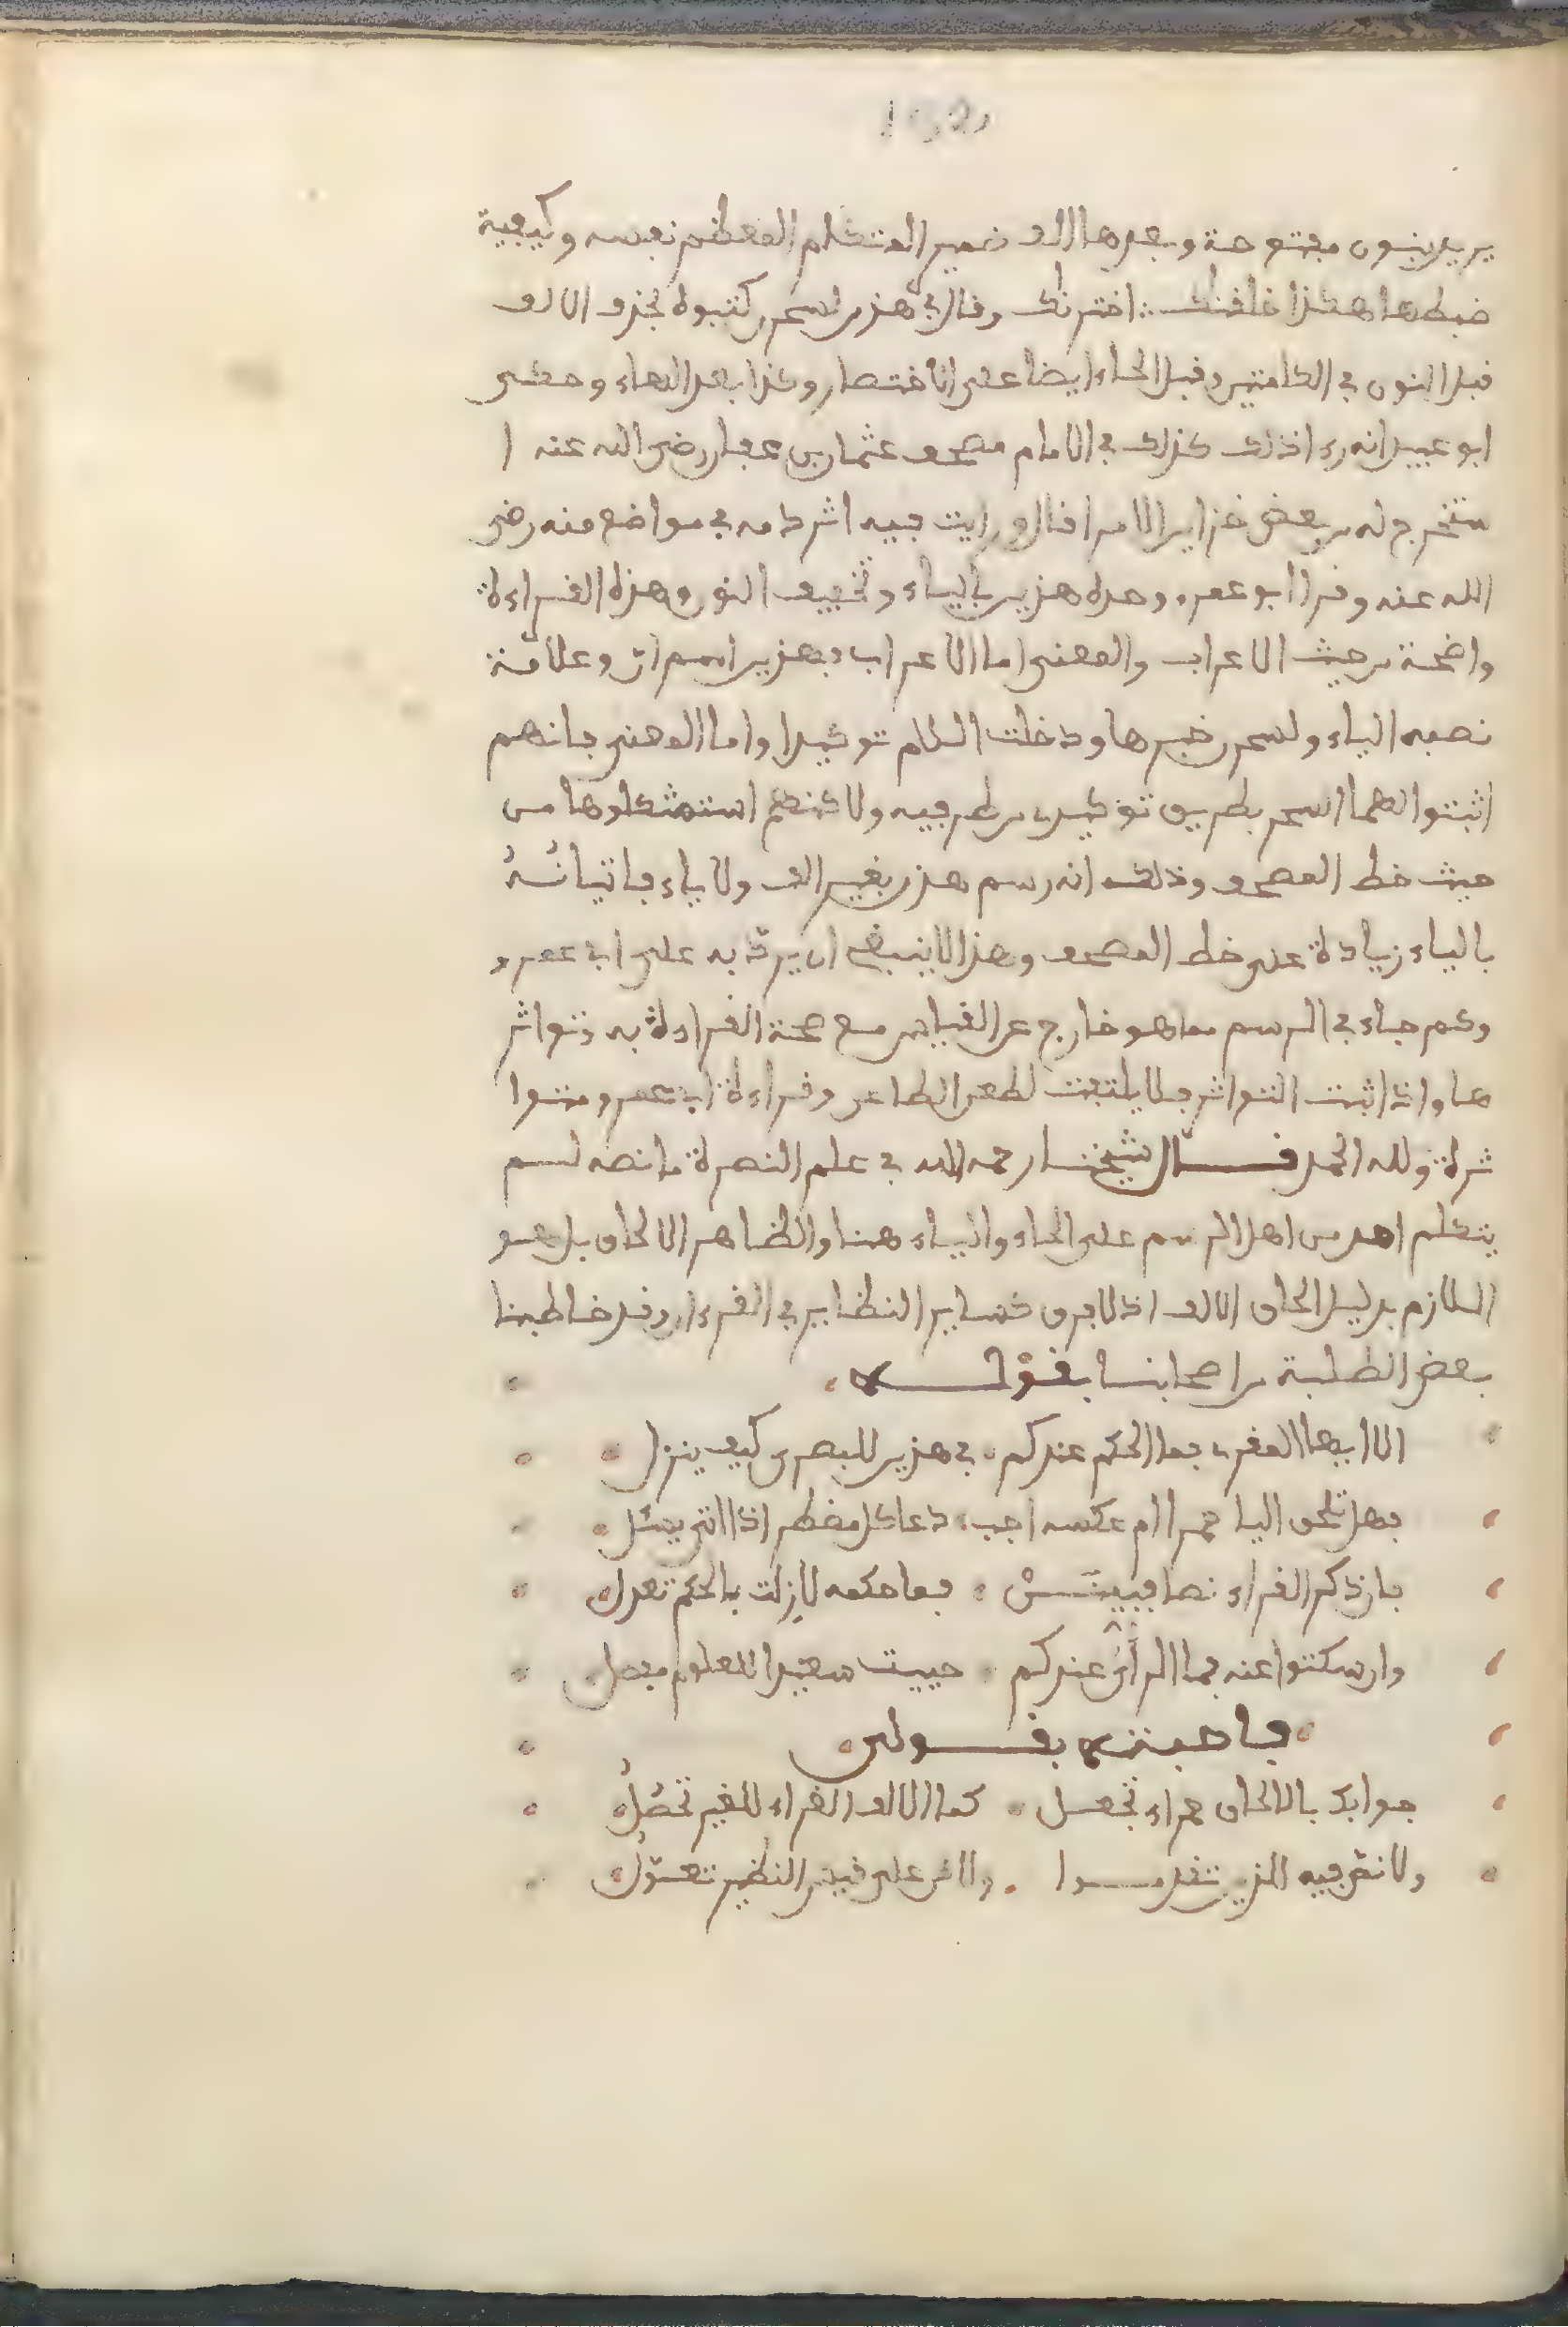 يريد بنون مفتوحة وبعدها الف ضمير المتكلم المعظم نفسه وكيفية
ضبطها هكذا خلقنك اخترنك وقال في هذن لسحرن كتبوه بحذف الالف
قبل النون في الكلمتين وقبل الحاء ايضا على الاختصار وكذا بعد الهاء وحكى
ابو عبيد انه رءا ذلك كذلك في الامام مصحف عثمان بن عفان رضي الله عنه ا
ستخرج له من بعض خزاين الامرا قال ورايت فيه اثر دمه في مواضع منه رضي
الله عنه وقرا ابو عمرو وحده هذين بالياء وتخفيف النون وهذه القراءة
واضحة من حيث الاعراب والمعنى اما الاعراب فهذين اسم ان وعلامة
نصبه الياء ولسحرن خبرها ودخلت اللام توكيدا واما المعنى فانهم
اثبتوا لهما السحر بطريق توكيد من طرفيه ولاكنهم استشكلوها من
حيث خط المصحف وذلك انه رسم هذن بغير الف ولا ياء فاتيانُهُ
بالياء زيادة على خط المصحف وهذا لا ينبغي ان يردّ به على ابي عمرو
وكم جاء في الرسم مما هو خارج عن القياس مع صحة القراءة به وتواتر
ها واذا ثبت التواتر فلا يلتفت لطعن الطاعن وقراءة ابي عمرو متوا
ترة ولله الحمد قال شيخنا رحمه الله في علم النصرة ما نصه لم
يتكلم احد من اهل الرسم على الحاء والياء هنا والظاهر الالحاق بل هو
اللازم بدليل الحاق الالف اذ لا فرق كساير النظاير في القرءان وقد خاطبنا
بعض الطلبة من اصحابنا بقوله
الا ايها المقرء فما الحكم عندكم في هذين للبصري كيف ينزل
فهل تلحق اليا حمرا ام عكسه اجب دعا كل مضطر اذا اتى يسئل
فان ذكر القراء نصا فبيننْ فما حكمه لازلت بالحكم تعدل
وان سكتوا عنه فما الرأيُ عندكم حييت سعيدا للعلوم مفصل
فاجبته بقولي
جوابك بالالحاق حمراء تجعل كما الالف القراء للغير تحصُلُ
ولا نص فيه للذين تقدموا ولاكن على قيس النظير تعوّلُ